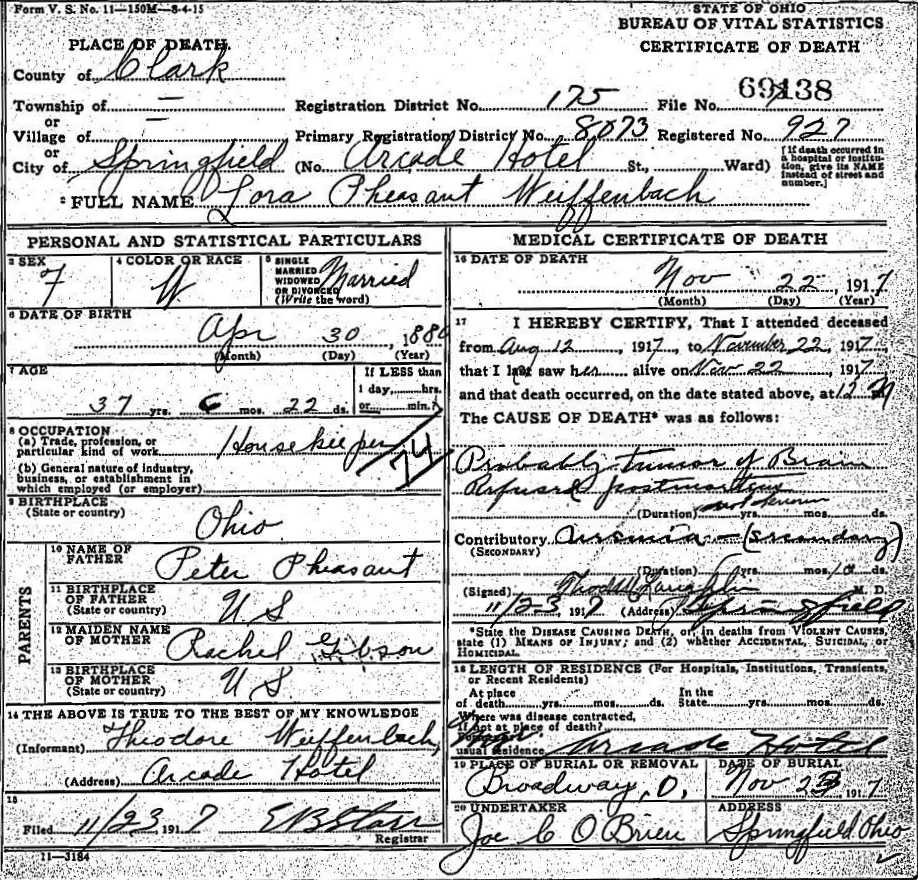 Form V. S. No. 11—150M—8-4-15
STATE OF OHIO
BUREAU OF VITAL STATISTICS
CERTIFICATE OF DEATH
PLACE OF DEATH.
County of Clark
Township of —
or
Village of —
or
City of Springfield
Registration District No. 175 File No. 69138
Primary Registration District No. 8073 Registered No. 927
(No. Arcade Hotel St., Ward)
[If death occurred in a hospital or institution, give its NAME instead of street and number.]
2 FULL NAME Lora Pheasant Weiffenbach
PERSONAL AND STATISTICAL PARTICULARS
3 SEX
F
4 COLOR OR RACE
W
5 SINGLE
MARRIED
WIDOWED
OR DIVORCED
(Write the word)
Married
6 DATE OF BIRTH
Apr 30, 1880
(Month) (Day) (Year)
7 AGE
37 yrs. 6 mos. 22 ds.
If LESS than
1 day, hrs.
or min.?
8 OCCUPATION
(a) Trade, profession, or
particular kind of work Housekeeper
74
(b) General nature of industry,
business, or establishment in
which employed (or employer)
9 BIRTHPLACE
(State or country)
Ohio
PARENTS
10 NAME OF
FATHER
Peter Pheasant
11 BIRTHPLACE
OF FATHER
(State or country)
U S
12 MAIDEN NAME
OF MOTHER
Rachel Gibson
13 BIRTHPLACE
OF MOTHER
(State or country)
U S
14 THE ABOVE IS TRUE TO THE BEST OF MY KNOWLEDGE
(Informant) Theodore Weiffenbach
(Address) Arcade Hotel
15
Filed 11/23 1917
Registrar
11—3184
MEDICAL CERTIFICATE OF DEATH
16 DATE OF DEATH
Nov 22, 1917
(Month) (Day) (Year)
17 I HEREBY CERTIFY, That I attended deceased
from Aug 12, 1917, to November 22, 1917
that I last saw her alive on Nov 22, 1917
and that death occurred, on the date stated above, at 12
The CAUSE OF DEATH* was as follows:
Probably tumor of Brain
Refused postmortem
not known
(Duration) yrs. mos. ds.
Contributory Uremia — (secondary)
(SECONDARY)
(Duration) yrs. mos. 10 ds.
(Signed) M. D.
11/23, 1917 (Address) Springfield
*State the DISEASE CAUSING DEATH, or, in deaths from VIOLENT CAUSES,
state (1) MEANS OF INJURY; and (2) whether ACCIDENTAL, SUICIDAL, or
HOMICIDAL.
18 LENGTH OF RESIDENCE (For Hospitals, Institutions, Transients,
or Recent Residents)
At place
of death yrs. mos. ds.
In the
State yrs. mos. ds.
Where was disease contracted,
if not at place of death?
usual residence Arcade Hotel
19 PLACE OF BURIAL OR REMOVAL
Broadway, O,
DATE OF BURIAL
Nov 23 1917
20 UNDERTAKER
Joe C O Brien
ADDRESS
Springfield Ohio